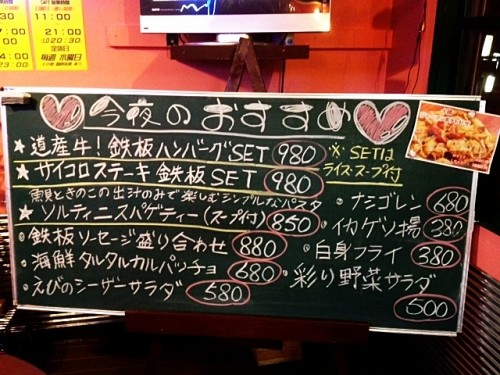 11:00
17:00
21:00
LO20:30
定休日
毎週 水曜日
今夜のおすすめ
★道産牛!鉄板ハンバーグSET 980
★サイコロステーキ鉄板SET 980
※SETは
ライス・スープ付
魚貝ときのこの出汁のみで楽しむシンプルなパスタ
★ソルティーニスパゲティー(スープ付) 850
・鉄板ソーセージ盛り合わせ 880
・海鮮タルタルカルパッチョ 680
・えびのシーザーサラダ 580
・ナシゴレン 680
・イカゲソ揚 380
・白身フライ 380
・彩り野菜サラダ
500